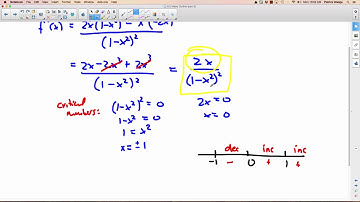 f'(x) = 2x(1-x²) - x²(-2x) / (1-x²)²
= 2x - 2x³ + 2x³ / (1-x²)² = 2x / (1-x²)²
critical numbers: (1-x²)² = 0 2x = 0
1-x² = 0 x = 0
1 = x²
x = ± 1
dec inc inc
-1 - 0 + 1 +